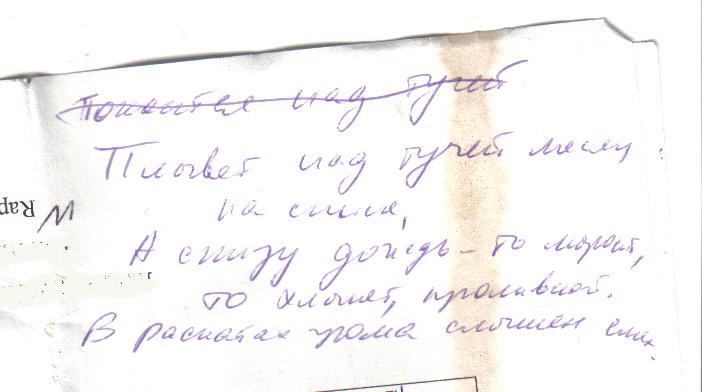 над тучей
Плывет над тучей месяц
на спине,
А снизу дождь – то моросит,
то хлынет, проливной.
В раскатах грома слышен
Кар